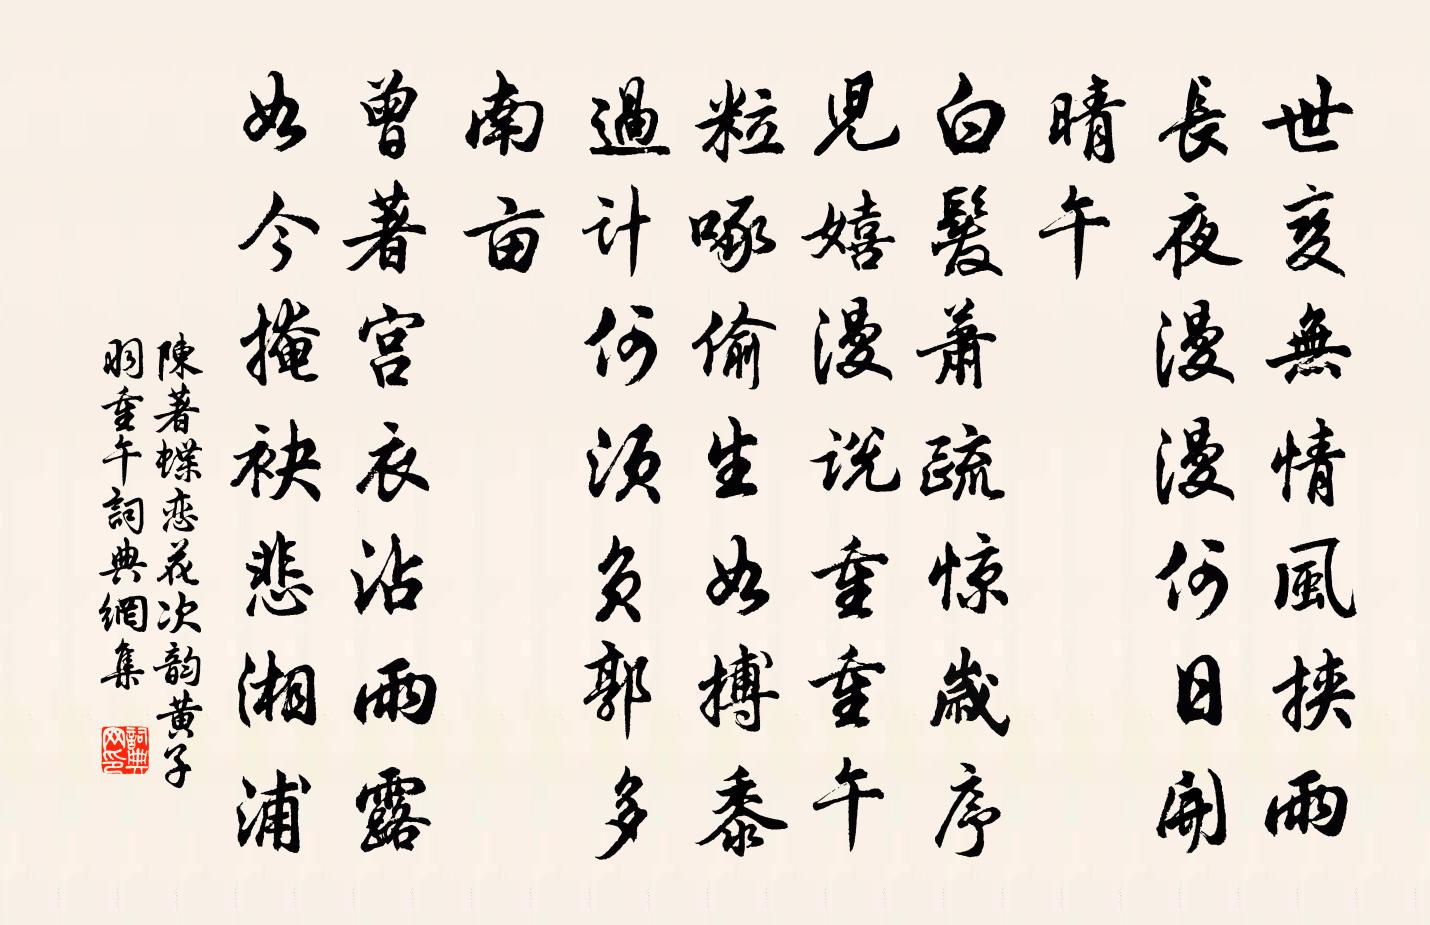 世变無情風挾雨
長夜漫漫何日開
晴午
白髮蕭疏惊歲序
児嬉漫说重重午
粒啄偷生如搏黍
過计何须負郭多
南亩
曾著宫衣沾雨露
如今掩袂悲湘浦
陳著蝶恋花次韵黄子
羽重午詞典網集
詞典网印